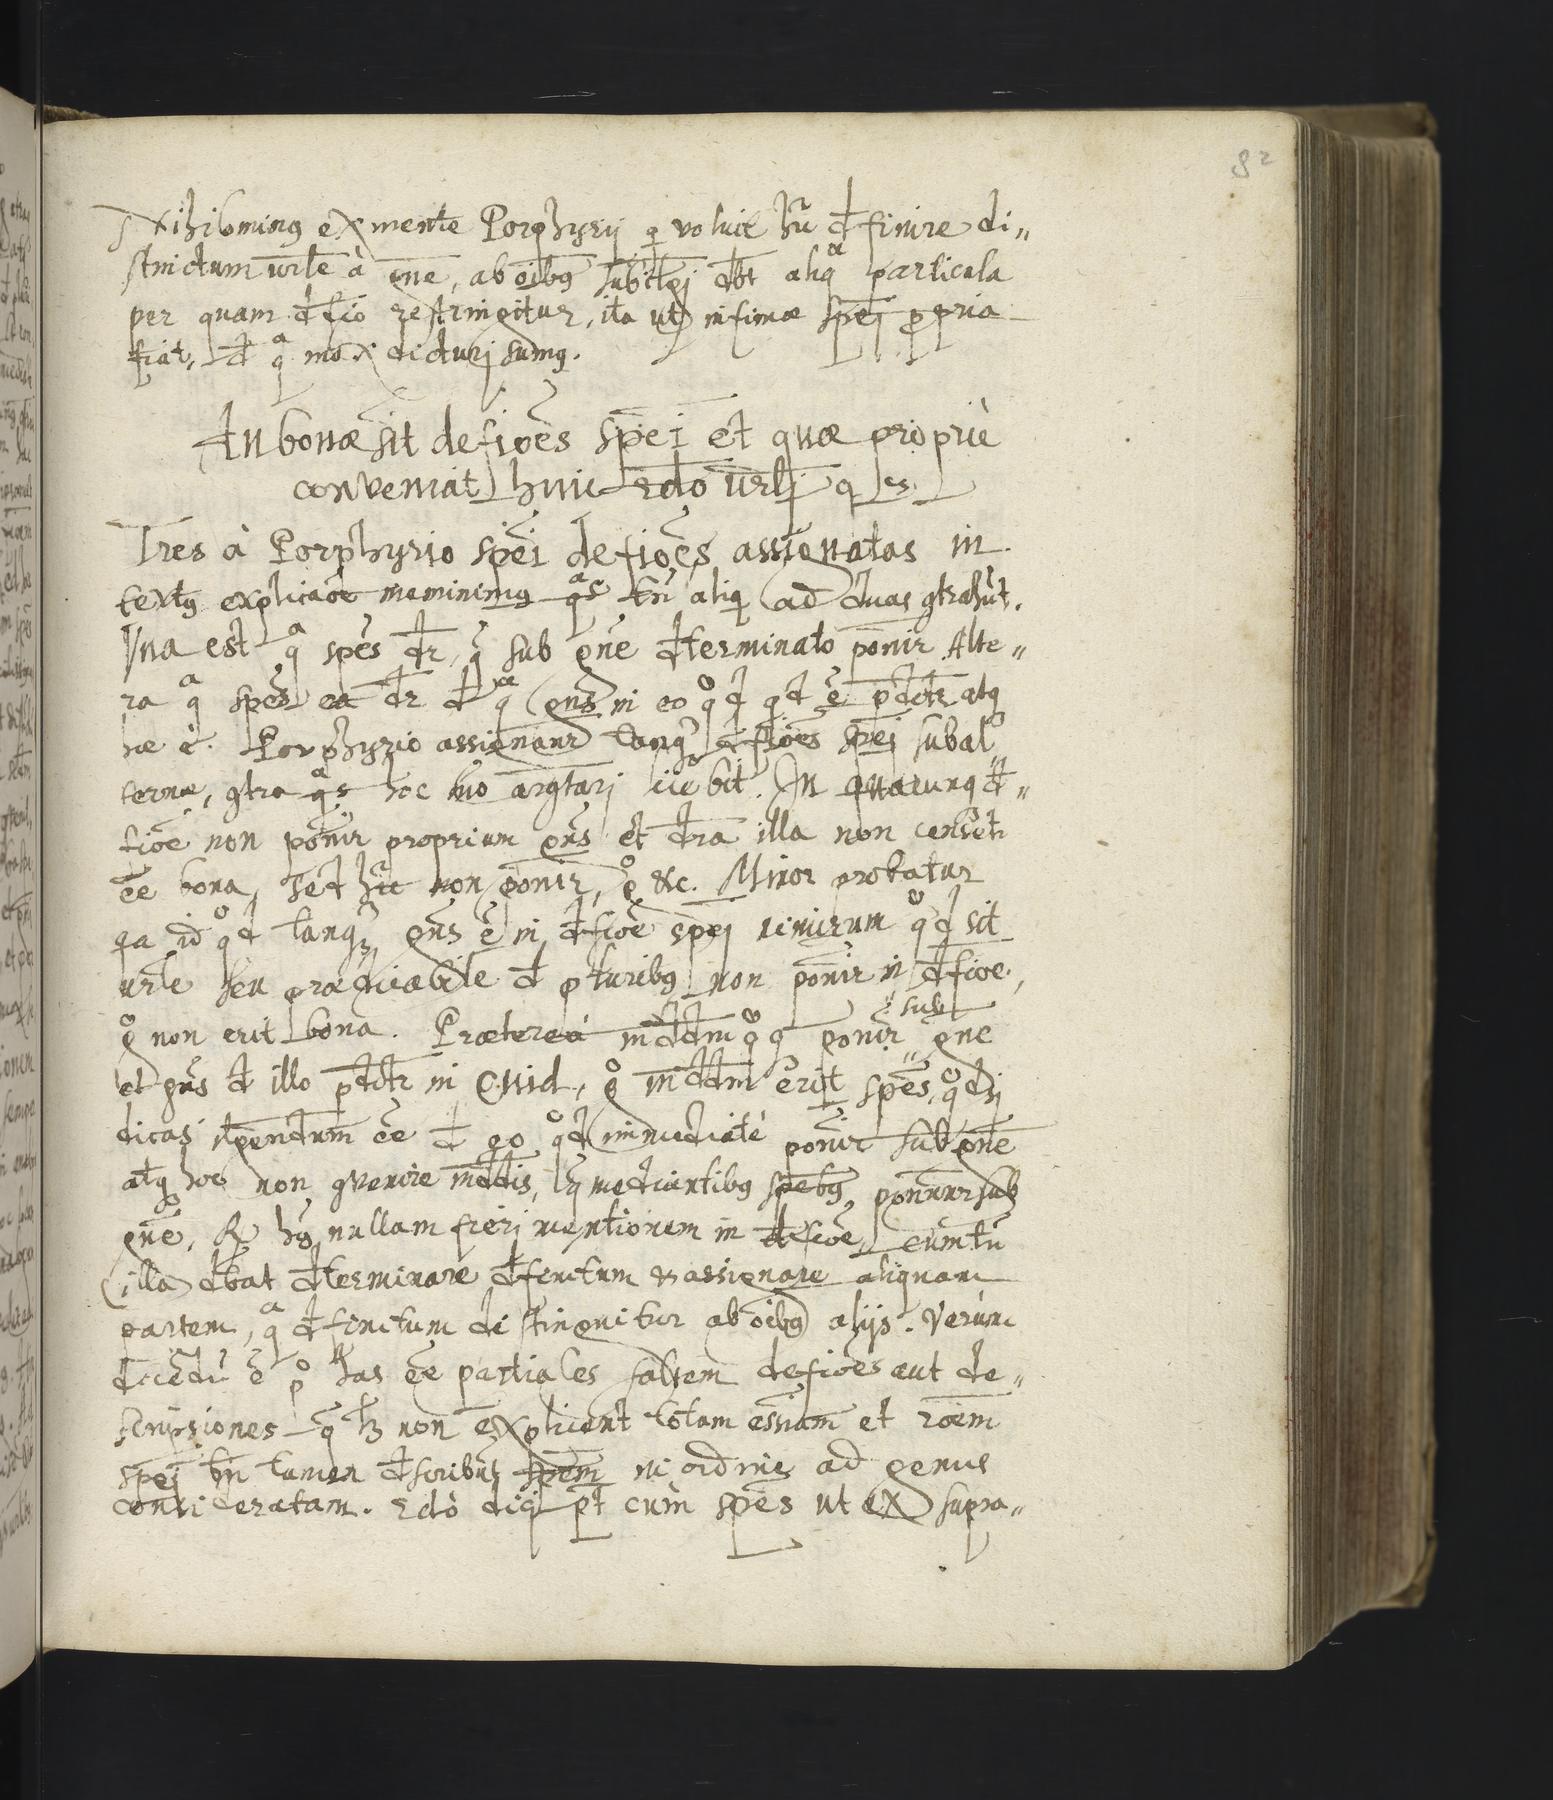 82
exhibemus ex mente Porphyrij q voluit hũ definire di„
stinctum urle à gne, ab oibq subijci dbt aliq particula
per quam defio restringitur, ita ut infimae spei propria
fiat, de qa mox dicturj sumq.
An bonæ sit defiões spẽi et quæ propriè
conveniat huic
Tres à Porphyrio spẽi defiões assignatas in
textq explicaõe meminimq qas tñ aliq ad duas gtrahũt.
Vna est qa spẽs dr, q sub gne determinato ponir. Alte„
ra qa spẽs ea dr de qua gns in eo qd qd ẽ pdctr atq
hæ à Porphyrio assignanr tanq defiões spẽi subal
ternæ, gtra qas hoc mo argtarj licebit. In quacunq de„
fiõe non ponir proprium gns et dra illa non censetr
ẽe bona, sed hic non ponir, go &c. Minor probatur
qa id qd tanq gns ẽ in defiõe spẽi nimirum qd sit
urle seu prædicabile de pluribq non ponir in defiõe,
go non erit bona. Prætereà inddm qq ponir sub gne
et gns de illo pdctr in Quid, go inddm erit spẽs, qd si
dicas ẽe de eo qd immediatè ponir sub gne
atq hoc non gvenire inddis, q mediantibq spebq ponunr sub
gne, R hq nullam fierj mentionem in defiõe, cum tñ
illa dbat determinare definitum & assignare aliquam
partem, qa definitum distinguitur ab oibq alijs. Verùm
dicẽdũ ẽ po has ẽe partiales saltem defiões aut de„
scripsiones q lz non explicent totam essnam et rõem
spẽi bñ tamen describũt spem in ordine ad genus
consideratam. 2do dicj pt cum spẽs ut ex supra„